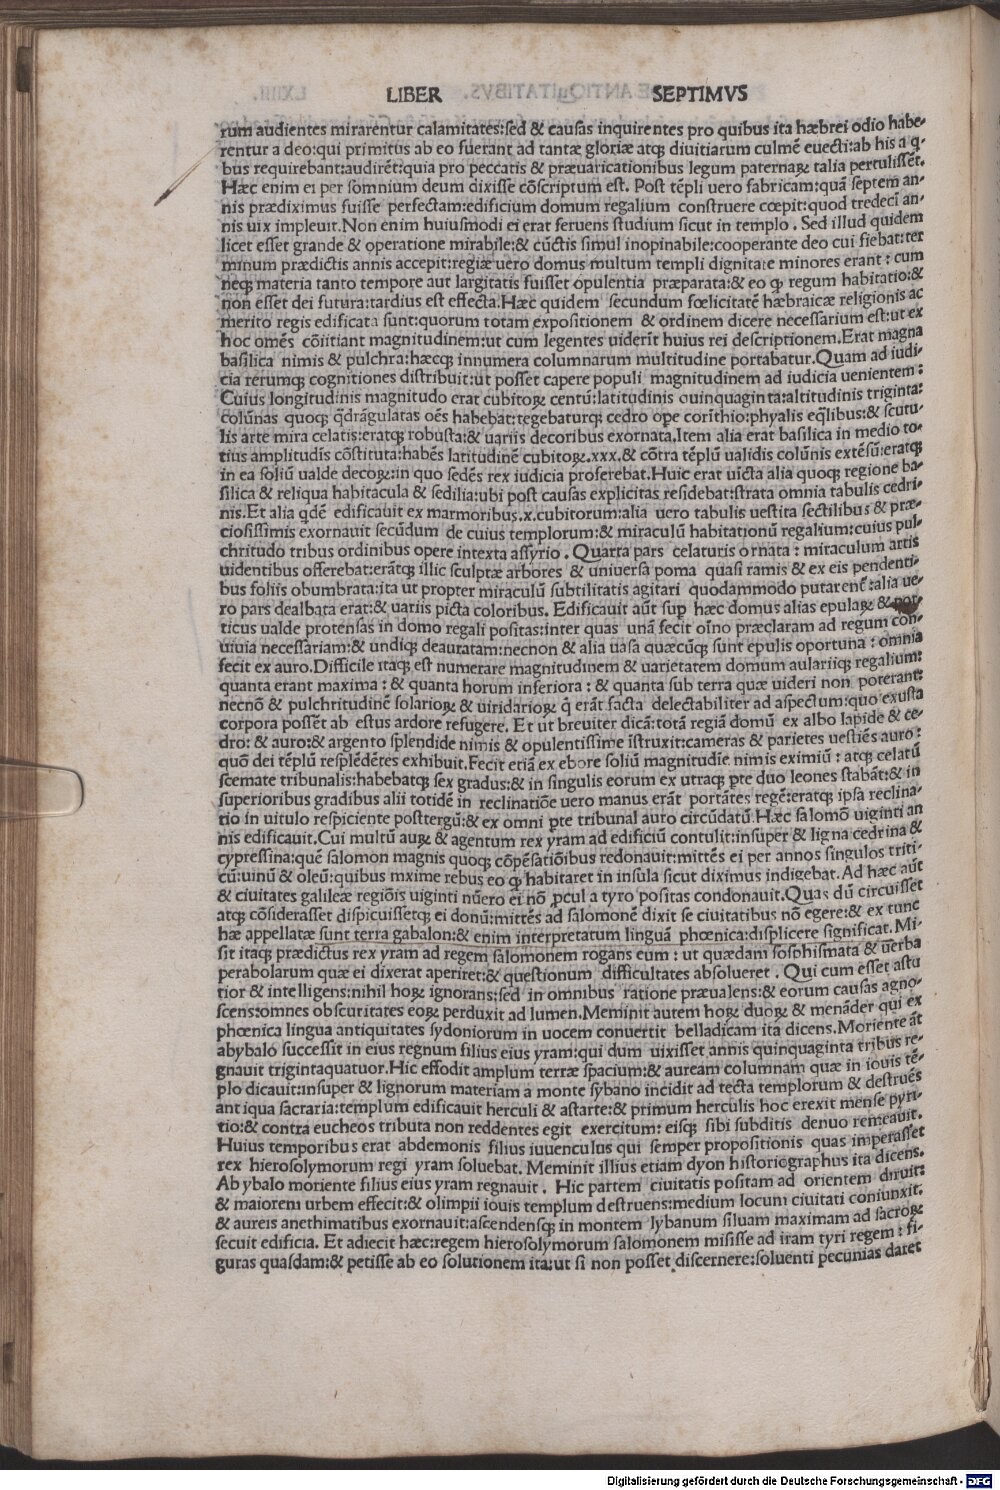 LIBER SEPTIMVS
rum audientes mirarentur calamitates:sed & causas inquirentes pro quibus ita hæbrei odio habe-
rentur a deo:qui primitus ab eo fuerant ad tantæ gloriæ atqꝫ diuitiarum culmē euecti:ab his a q̄-
bus requirebant:audirēt:quia pro peccatis & præuaricationibus legum paternaꝝ talia pertulissēt.
Hæc enim ei per somnium deum dixisse cōscriptum est. Post tēpli uero fabricam:quā septem an-
nis prædiximus fuisse perfectam:edificium domum regalium construere cœpit:quod tredecī an-
nis uix impleuit.Non enim huiusmodi ei erat feruens studium sicut in templo. Sed illud quidem
licet esset grande & operatione mirabile:& cūctis simul inopinabile:cooperante deo cui fiebat:ter
minum prædictis annis accepit:regiæ uero domus multum templi dignitate minores erant: cum
neqꝫ materia tanto tempore aut largitatis fuisset opulentia præparata:& eo ꝙ regum habitatio:&
non esset dei futura:tardius est effecta.Hæc quidem secundum fœlicitatē hæbraicæ religionis ac
merito regis edificata sunt:quorum totam expositionem & ordinem dicere necessarium est:ut ex
hoc omēs cōiitiant magnitudinem:ut cum legentes uiderīt huius rei descriptionem.Erat magna
basilica nimis & pulchra:hæcqꝫ innumera columnarum multitudine portabatur.Quam ad iudi-
cia rerumqꝫ cognitiones distribuit:ut posset capere populi magnitudinem ad iudicia uenientem:
Cuius longitudinis magnitudo erat cubitoꝝ centū:latitudinis ouinquaginta:altitudinis triginta:
colūnas quoqꝫ q̄drāgulatas oēs habebat:tegebaturqꝫ cedro ope corīthio:phyalis eq̄libus:& scutu-
lis arte mira celatis:eratqꝫ robusta:& uariis decoribus exornata.Item alia erat basilica in medio to-
tius amplitudīs cōstituta:habēs latitudinē cubitoꝝ.xxx.& cōtra tēplū ualidis colūnis extēsū:eratqꝫ
in ea soliū ualde decoꝝ:in quo sedēs rex iudicia proferebat.Huic erat uīcta alia quoqꝫ regione ba-
silica & reliqua habitacula & sedilia:ubi post causas explicitas residebat:strata omnia tabulis cedri-
nis.Et alia qdē edificauit ex marmoribus.x.cubitorum:alia uero tabulis uestita sectilibus & præ-
ciosissimis exornauit secūdum de cuius templorum:& miraculū habitationū regalium:cuius pul-
chritudo tribus ordinibus opere intexta assyrio. Quarta pars celaturis ornata: miraculum artis
uidentibus offerebat:erātqꝫ illic sculptæ arbores & uniuersa poma quasi ramis & ex eis pendenti-
bus foliis obumbrata:ita ut propter miraculū subtilitatis agitari quodammodo putarenť:alia ue-
ro pars dealbata erat:& uariis picta coloribus. Edificauit aūt sup hæc domus alias epulaꝝ & por-
ticus ualde protensas in domo regali positas:inter quas unā fecit oīno præclaram ad regum con-
uiuia necessariam:& undiqꝫ deauratam:necnon & alia uasa quæcūqꝫ sunt epulis oportuna: omnia
fecit ex auro.Difficile itaqꝫ est numerare magnitudinem & uarietatem domum aulariiqꝫ regalium:
quanta erant maxima: & quanta horum inferiora: & quanta sub terra quæ uideri non poterant:
necnō & pulchritudinē solarioꝝ & uiridarioꝝ q̄ erāt facta delectabiliter ad aspectum:quo exusta
corpora possēt ab estus ardore refugere. Et ut breuiter dicā:totā regiā domū ex albo lapide & ce-
dro: & auro:& argento splendide nimis & opulentissime īstruxit:cameras & parietes uestiēs auro:
quō dei tēplū resplēdētes exhibuit.Fecit etiā ex ebore soliū magnitudīe nimis eximiū: atqꝫ celatū
scemate tribunalis:habebatqꝫ sex gradus:& in singulis eorum ex utraqꝫ pte duo leones stabāt:& in
superioribus gradibus alii totidē in reclinatiōe uero manus erāt portātes regē:eratqꝫ ipsa reclina-
tio in uitulo respiciente posttergū:& ex omni pte tribunal auro circūdatū.Hæc salomō uiginti an
nis edificauit.Cui multū auꝝ & agentum rex yram ad edificiū contulit:insuper & ligna cedrina &
cypressina:quē salomon magnis quoqꝫ cōpēsatiōibus redonauit:mittēs ei per annos singulos triti-
cū:uinū & oleū:quibus mxime rebus eo ꝙ habitaret in insula sicut diximus indigebat.Ad hæc aūt
& ciuitates galileæ regiōis uiginti nūero ei nō pcul a tyro positas condonauit.Quas dū circuisset
atqꝫ cōsiderasset dispicuissetqꝫ ei donū:mittēs ad salomonē dixit se ciuitatibus nō egere:& ex tunc
hæ appellatæ sunt terra gabalon:& enim interpretatum linguā phœnica:displicere significat.Mi-
sit itaqꝫ prædictus rex yram ad regem salomonem rogans eum: ut quædam sosphismata & uerba
perabolarum quæ ei dixerat aperiret:& questionum difficultates absolueret. Qui cum esset astu
tior & intelligens:nihil hoꝝ ignorans:sed in omnibus ratione præualens:& eorum causas agno-
scens:omnes obscuritates eoꝝ perduxit ad lumen.Meminit autem hoꝝ duoꝝ & menāder qui ex
phœnica lingua antiquitates sydoniorum in uocem conuertit belladicam ita dicens.Moriente āt
abybalo successit in eius regnum filius eius yram:qui dum uixisset annis quinquaginta tribus re-
gnauit trigintaquatuor.Hic effodit amplum terræ spacium:& auream columnam quæ in iouis tē-
plo dicauit:insuper & lignorum materiam a monte sybano incidit ad tecta templorum & destruēs
antiqua sacraria:templum edificauit herculi & astarte:& primum herculis hoc erexit mense pyri-
tio:& contra eucheos tributa non reddentes egit exercitum: eisqꝫ sibi subditis denuo remeauit.
Huius temporibus erat abdemonis filius iuuenculus qui semper propositionis quas imperasset
rex hierosolymorum regi yram soluebat. Meminit illius etiam dyon historiographus ita dicens.
Abybalo moriente filius eius yram regnauit. Hic partem ciuitatis positam ad orientem diruit:
& maiorem urbem effecit:& olimpii iouis templum destruens:medium locum ciuitati coniunxit.
& aureis anethimatibus exornauit:ascendensqꝫ in montem lybanum siluam maximam ad sacroꝝ
secuit edificia. Et adiecit hæc:regem hierosolymorum salomonem misisse ad iram tyri regem: fi-
guras quasdam:& petisse ab eo solutionem ita:ut si non posset discernere:soluenti pecunias daret
Digitalisierung gefördert durch die Deutsche Forschungsgemeinschaft - DFG